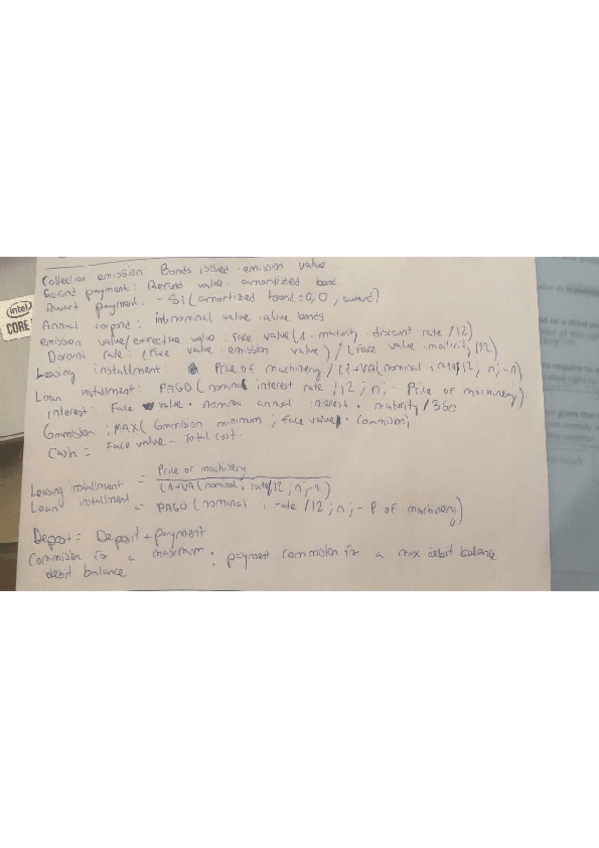 Collection emission: Bonds issued · emission value
Refund payment: Refund value · amortized bond
Award payment: - Si (amortized bond = 0; 0; award)
Annual : int·nominal value · alive bonds
emission value/effective value: Face value (1 - maturity · discount rate /12)
Discount rate: (Face value - emission value) / (Face value · maturity/12)
Leasing installment: Price of machinery / (1+VA(nominal; rate/12; n; -1)
Loan installment: PAGO (nominal interest rate /12; n; - Price of machinery)
interest: Face value · nominal annual interest · maturity /360
Commision: MAX( Commision minimum; face value · commision)
Cash = Face value - Total cost.
Leasing installment = Price of machinery
(1+VA(nominal; rate/12; n; -1)
Loan installment = PAGO (nominal; rate /12; n; - P of machinery)
Deposit = Deposit + payment
Commision for a maximum : payment commision for a max debit balance
debit balance
intel
CORE